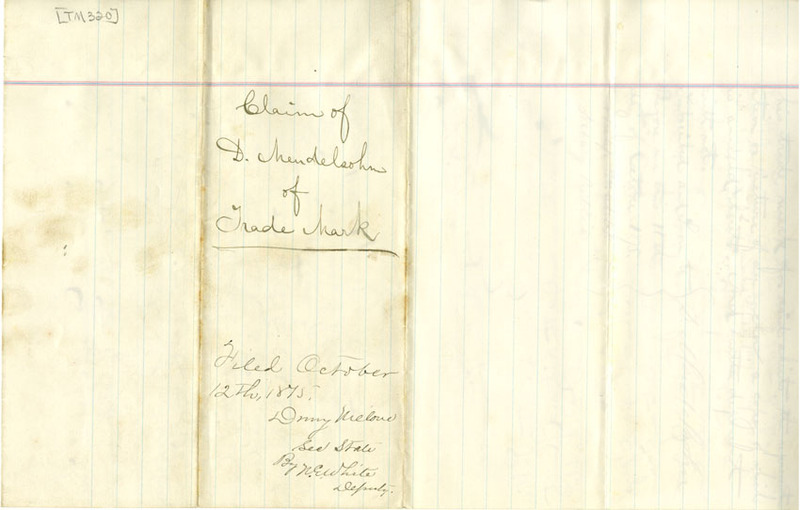 [TM320]
Claim of
D. Mendelsohn
of
Trade Mark
Filed October
12th, 1875.
Drury Melone
Sec State
By
White
Deputy.